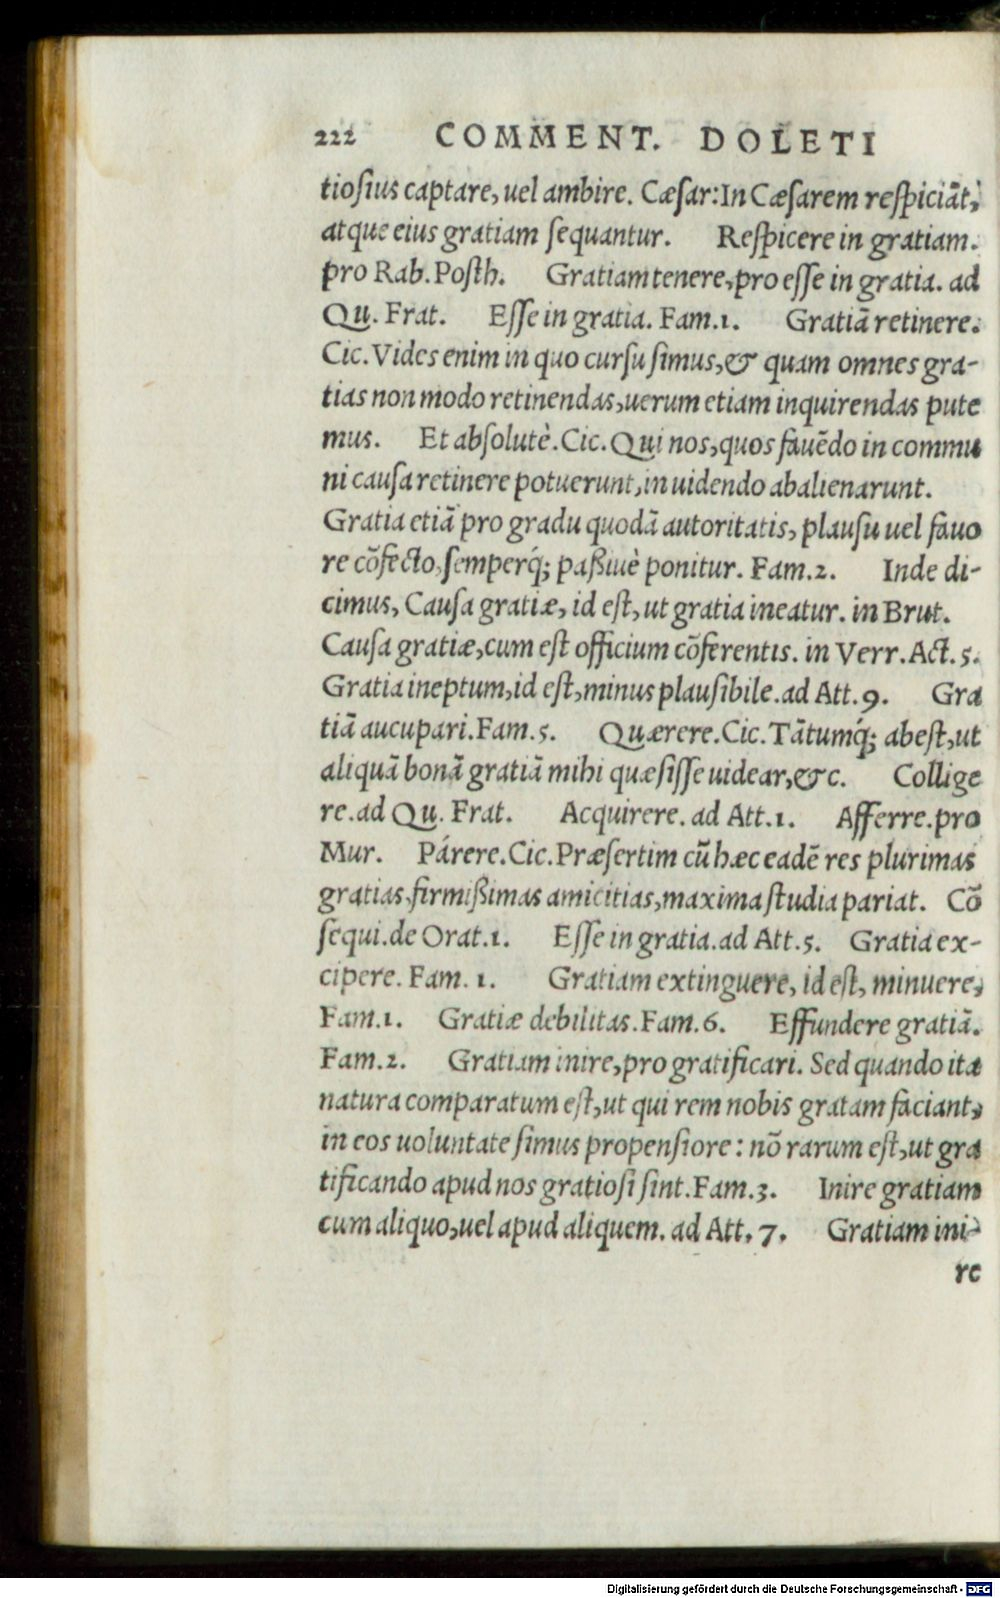 222 COMMENT. DOLETI
tiosius captare, uel ambire. Cæsar: In Cæsarem respiciāt,
atque eius gratiam sequantur. Respicere in gratiam.
pro Rab. Posth. Gratiam tenere, pro esse in gratia. ad
Qu. Frat. Esse in gratia. Fam.1. Gratiā retinere.
Cic. Vides enim in quo cursu simus, & quam omnes gra-
tias non modo retinendas, uerum etiam inquirendas pute
mus. Et absolutè. Cic. Qui nos, quos fauēdo in commu
ni causa retinere potuerunt, inuidendo abalienarunt.
Gratia etiā pro gradu quodā autoritatis, plausu uel fauo
re cōfecto, semperq́; paßiuè ponitur. Fam.2. Inde di-
cimus, Causa gratiæ, id est, ut gratia ineatur. in Brut.
Causa gratiæ, cum est officium cōferentis. in Verr. Act. 5.
Gratia ineptum, id est, minus plausibile. ad Att. 9. Gra
tiā aucupari. Fam.5. Quærere. Cic. Tātumq́; abest, ut
aliquā bonā gratiā mihi quæsisse uidear, &c. Collige
re. ad Qu. Frat. Acquirere. ad Att.1. Afferre. pro
Mur. Párere. Cic. Præsertim cū hæc eadē res plurimas
gratias, firmißimas amicitias, maxima studia pariat. Cō
sequi. de Orat.1. Esse in gratia. ad Att.5. Gratia ex-
cipere. Fam. 1. Gratiam extinguere, id est, minuere,
Fam.1. Gratiæ debilitas. Fam.6. Effundere gratiā.
Fam.2. Gratiam inire, pro gratificari. Sed quando ita
natura comparatum est, ut qui rem nobis gratam faciant,
in eos uoluntate simus propensiore: nō rarum est, ut gra
tificando apud nos gratiosi sint. Fam.3. Inire gratiam
cum aliquo, uel apud aliquem. ad Att. 7. Gratiam ini-
re
Digitalisierung gefördert durch die Deutsche Forschungsgemeinschaft - DFG